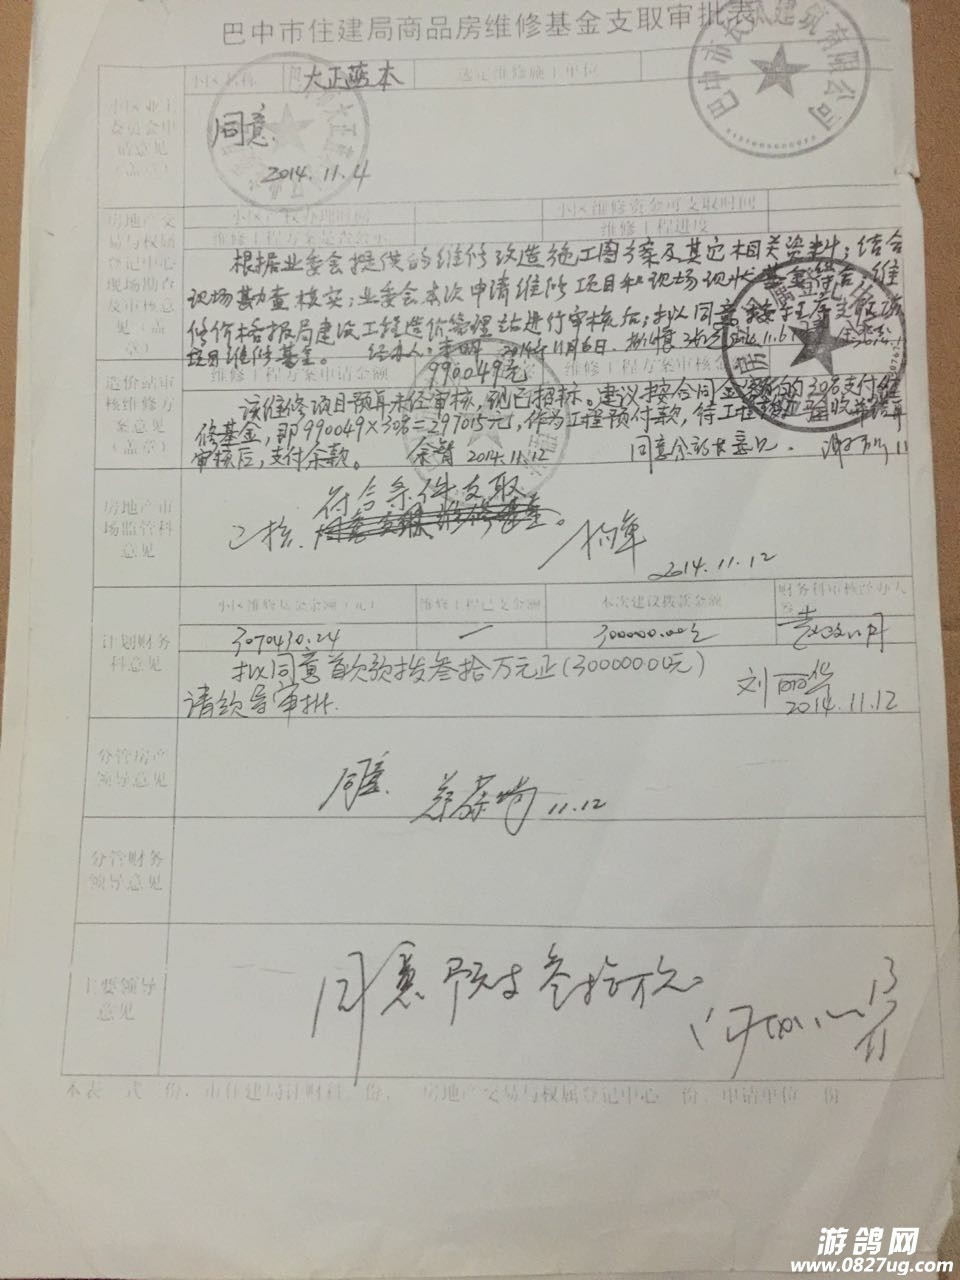 巴中市住建局商品房维修基金支取审批表
小区名称 大正蓝本 选定维修施工单位
小区业主委员会申请意见（盖章）
同意
2014.11.4
巴中市 建筑有限公司
房地产交易与权属登记中心现场勘查及审核意见（盖章）
小区产权办理时间 小区维修资金可支取时间
维修工程方案是否公示 维修工程进度
根据业委会提供的维修改造施工图方案及其它相关资料；结合
现场勘查核实；业委会本次申请维修项目和现场现状
修价格报局建设工程造价管理站进行审核后；拟同意
项目维修基金。 经办人：李 2014年11月6日
造价站审核维修方案意见（盖章）
维修工程方案申请金额 990049元 维修工程方案审核金
该维修项目预算未经审核，现已招标。建议按合同金额的30%支付维
修基金，即990049×30%=297015元，作为工程预付款，待工程 验收并结算
审核后，支付余款。 余智 2014.11.12 同意余站长意见.
房地产市场监管科意见
符合条件支取
已核. 2014.11.12
小区维修基金余额（元） 维修工程已支金额 本次建议拨款金额 财务科审核经办人
计划财务科意见
3070430.24 一 300000.00元
拟同意首次预拨叁拾万元正(300000.00元)
请领导审批. 刘丽华
2014.11.12
分管房产领导意见
同意. 11.12
分管财务领导意见
主要领导意见
同意预支叁拾万元.
13/11
本表一式 份，市住建局计财科 份， 房地产交易与权属登记中心 份，申请单位 份
游鸽网
www.0827ug.com